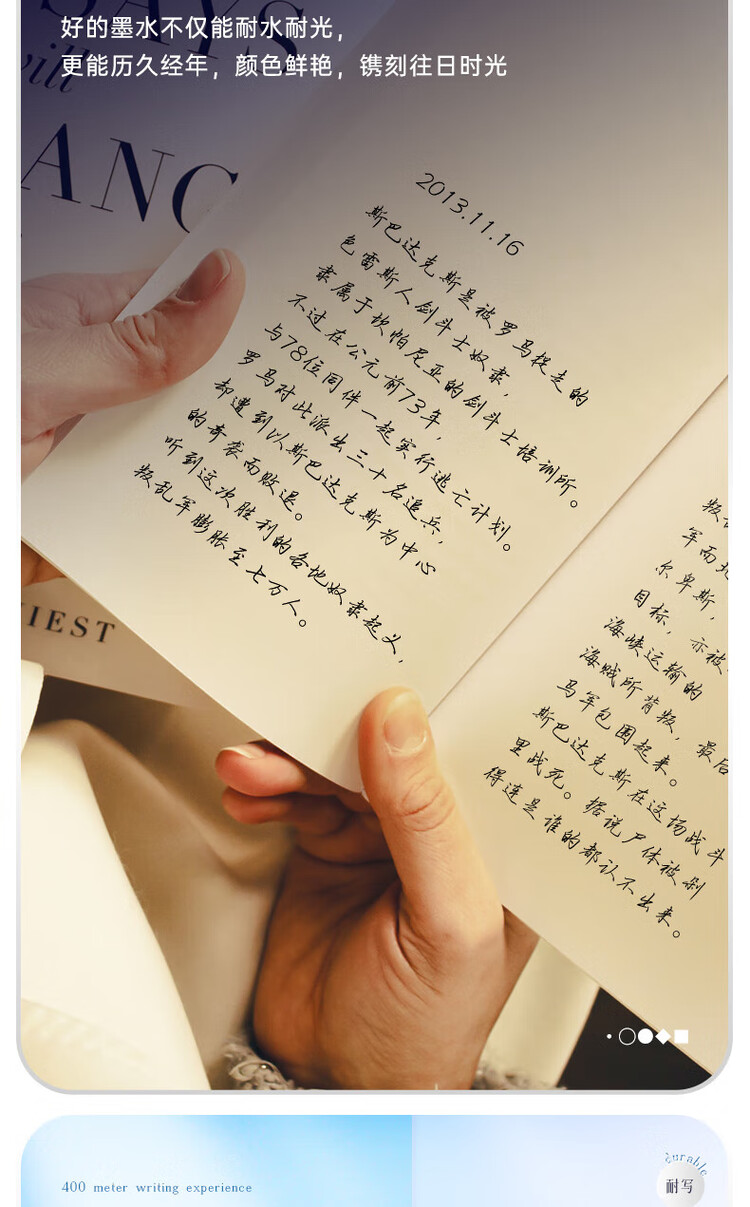 SAYS
will
ANC
IEST
好的墨水不仅能耐水耐光，
更能历久经年，颜色鲜艳，镌刻往日时光
2013.11.16
斯巴达克斯是被罗马捉走的
色雷斯人剑斗士奴隶，
隶属于坎帕尼亚的剑斗士培训所。
不过在公元前73年，
与78位同伴一起实行逃亡计划。
罗马对此派出三十名追兵，
却遭到以斯巴达克斯为中心
的奇袭而败退。
听到这次胜利的各地奴隶起义，
叛乱军膨胀至七万人。
叛
军而北
尔卑斯，
目标，亦被
海峡运输的
海贼所背叛，最后
马军包围起来。
斯巴达克斯在这场战斗
里战死。据说尸体被剁
得连是谁的都认不出来。
400 meter writing experience
durable
耐写